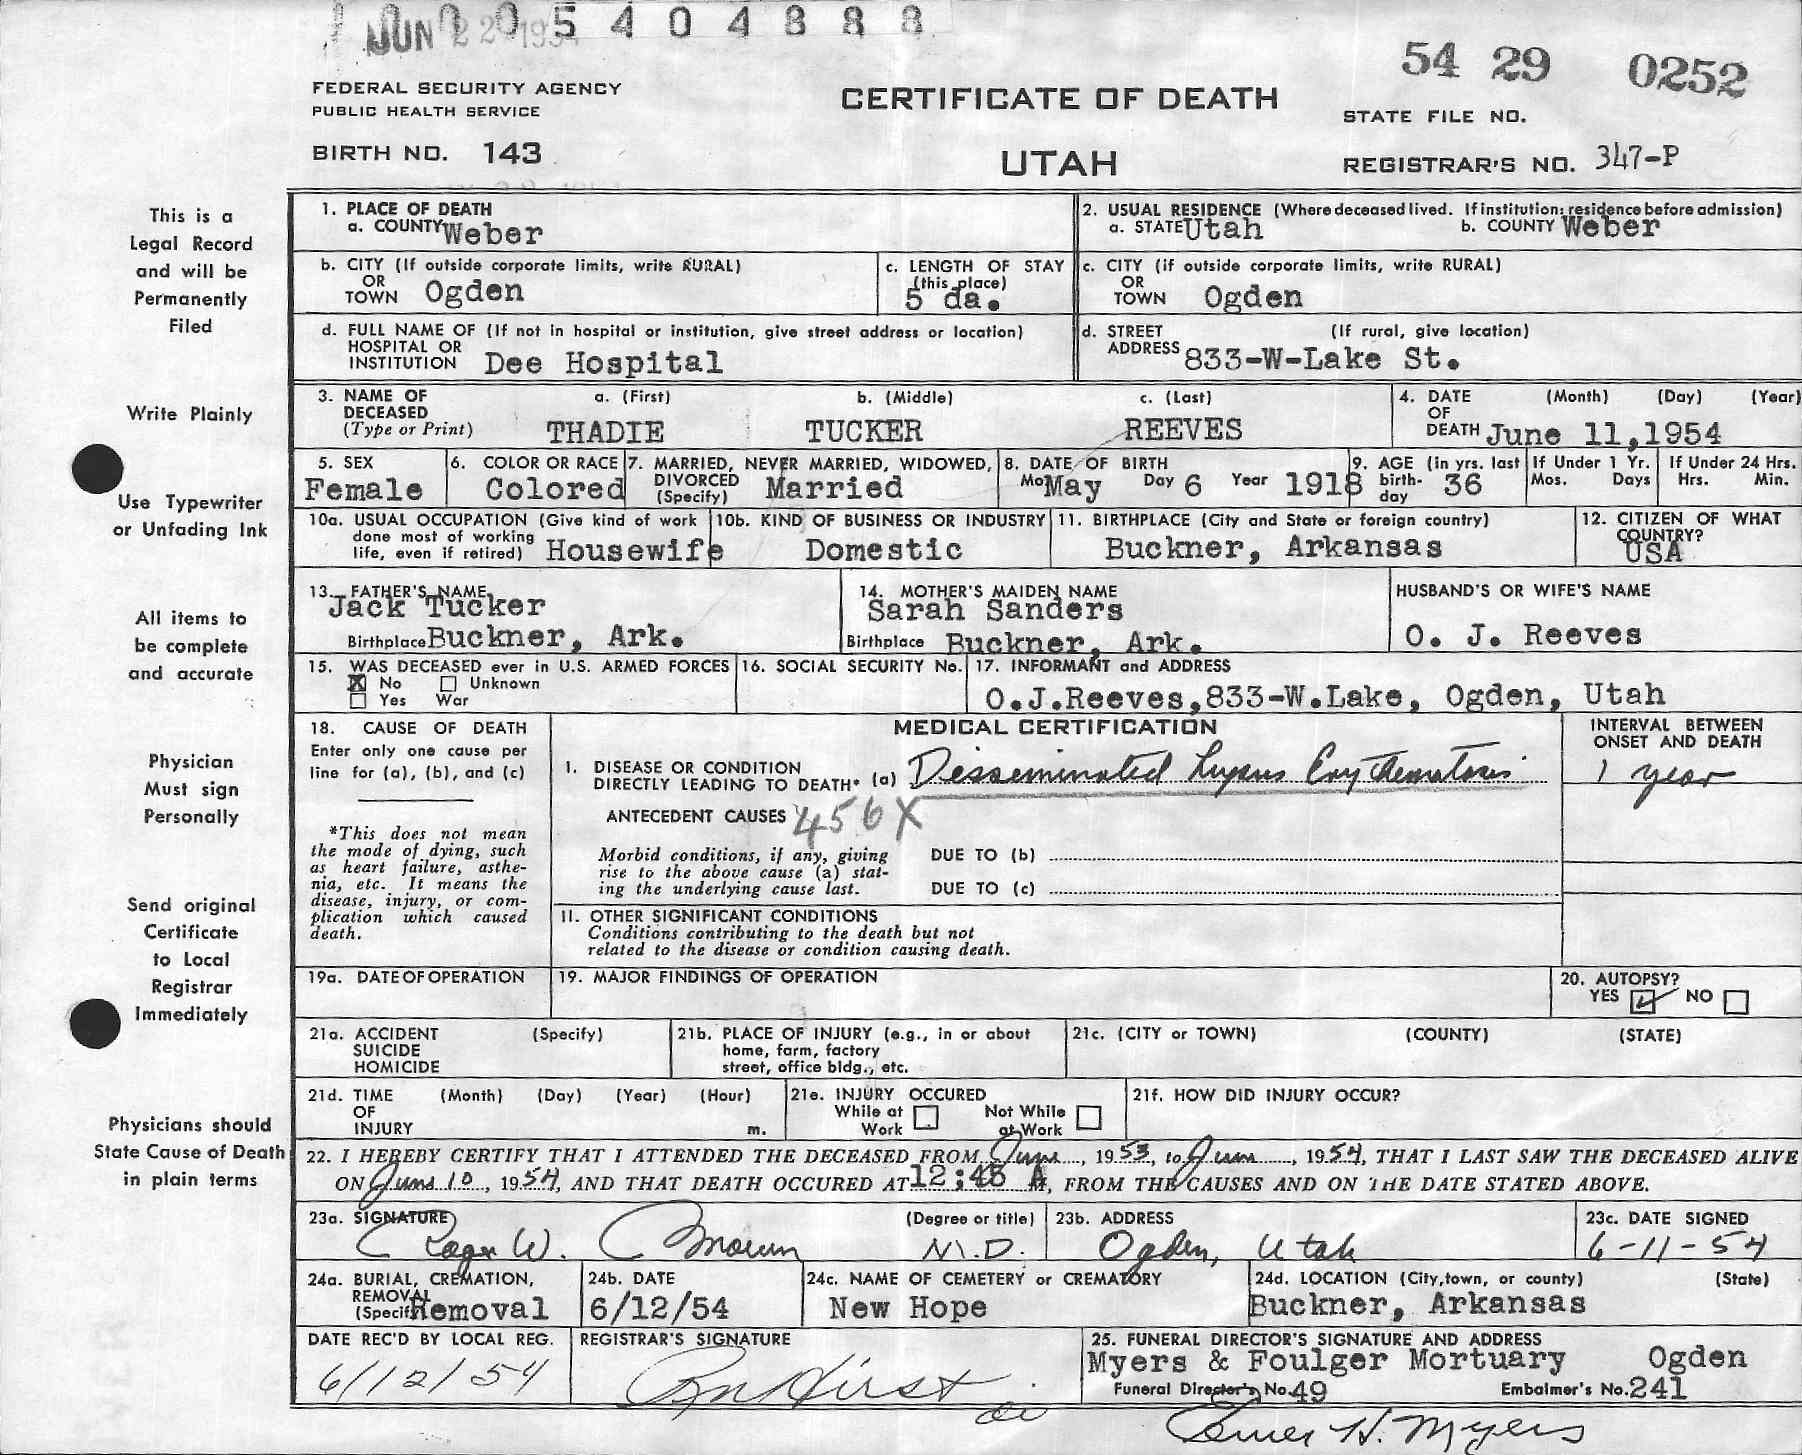 JUN 22 195
0 5 4 0 4 8 8 8
54 29 0252
FEDERAL SECURITY AGENCY
PUBLIC HEALTH SERVICE
CERTIFICATE OF DEATH
STATE FILE NO.
BIRTH NO. 143
UTAH
REGISTRAR'S NO. 347-P
This is a
Legal Record
and will be
Permanently
Filed
Write Plainly
Use Typewriter
or Unfading Ink
All items to
be complete
and accurate
Physician
Must sign
Personally
Send original
Certificate
to Local
Registrar
Immediately
Physicians should
State Cause of Death
in plain terms
1. PLACE OF DEATH
a. COUNTY Weber
2. USUAL RESIDENCE (Where deceased lived. If institution: residence before admission)
a. STATE Utah b. COUNTY Weber
b. CITY (If outside corporate limits, write RURAL)
OR
TOWN Ogden
c. LENGTH OF STAY
(this place)
5 da.
c. CITY (if outside corporate limits, write RURAL)
OR
TOWN Ogden
d. FULL NAME OF (If not in hospital or institution, give street address or location)
HOSPITAL OR
INSTITUTION Dee Hospital
d. STREET (If rural, give location)
ADDRESS 833-W-Lake St.
3. NAME OF
DECEASED
(Type or Print)
a. (First) b. (Middle) c. (Last)
THADIE TUCKER REEVES
4. DATE (Month) (Day) (Year)
OF
DEATH June 11,1954
5. SEX
Female
6. COLOR OR RACE
Colored
7. MARRIED, NEVER MARRIED, WIDOWED,
DIVORCED
(Specify) Married
8. DATE OF BIRTH
Mo May Day 6 Year 1918
9. AGE (in yrs. last
birth-
day 36
If Under 1 Yr.
Mos. Days
If Under 24 Hrs.
Hrs. Min.
10a. USUAL OCCUPATION (Give kind of work
done most of working
life, even if retired) Housewife
10b. KIND OF BUSINESS OR INDUSTRY
Domestic
11. BIRTHPLACE (City and State or foreign country)
Buckner, Arkansas
12. CITIZEN OF WHAT
COUNTRY?
USA
13. FATHER'S NAME
Jack Tucker
Birthplace Buckner, Ark.
14. MOTHER'S MAIDEN NAME
Sarah Sanders
Birthplace Buckner, Ark.
HUSBAND'S OR WIFE'S NAME
O. J. Reeves
15. WAS DECEASED ever in U.S. ARMED FORCES
X No Unknown
Yes War
16. SOCIAL SECURITY No.
17. INFORMANT and ADDRESS
O.J.Reeves,833-W.Lake, Ogden, Utah
18. CAUSE OF DEATH
Enter only one cause per
line for (a), (b), and (c)
*This does not mean
the mode of dying, such
as heart failure, asthe-
nia, etc. It means the
disease, injury, or com-
plication which caused
death.
MEDICAL CERTIFICATION
INTERVAL BETWEEN
ONSET AND DEATH
1. DISEASE OR CONDITION
DIRECTLY LEADING TO DEATH* (a) Disseminated Lupus Erythematosis
1 year
ANTECEDENT CAUSES 456X
Morbid conditions, if any, giving
rise to the above cause (a) stat-
ing the underlying cause last.
DUE TO (b)
DUE TO (c)
11. OTHER SIGNIFICANT CONDITIONS
Conditions contributing to the death but not
related to the disease or condition causing death.
19a. DATE OF OPERATION
19. MAJOR FINDINGS OF OPERATION
20. AUTOPSY?
YES ✓ NO
21a. ACCIDENT (Specify)
SUICIDE
HOMICIDE
21b. PLACE OF INJURY (e.g., in or about
home, farm, factory
street, office bldg., etc.
21c. (CITY or TOWN) (COUNTY) (STATE)
21d. TIME (Month) (Day) (Year) (Hour)
OF
INJURY m.
21e. INJURY OCCURED
While at Work
Not While at Work
21f. HOW DID INJURY OCCUR?
22. I HEREBY CERTIFY THAT I ATTENDED THE DECEASED FROM June, 1953, to June, 1954, THAT I LAST SAW THE DECEASED ALIVE
ON June 10, 1954, AND THAT DEATH OCCURED AT 12:45 A M, FROM THE CAUSES AND ON THE DATE STATED ABOVE.
23a. SIGNATURE (Degree or title)
W. M.D.
23b. ADDRESS
Ogden, Utah
23c. DATE SIGNED
6-11-54
24a. BURIAL, CREMATION,
REMOVAL
(Specify) Removal
24b. DATE
6/12/54
24c. NAME OF CEMETERY or CREMATORY
New Hope
24d. LOCATION (City,town, or county) (State)
Buckner, Arkansas
DATE REC'D BY LOCAL REG.
6/12/54
REGISTRAR'S SIGNATURE
Hirst
25. FUNERAL DIRECTOR'S SIGNATURE AND ADDRESS
Myers & Foulger Mortuary Ogden
Funeral Director's No. 49 Embalmer's No. 241
H. Myers